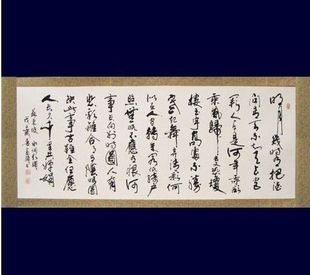 明月幾時有把酒
問青天不知天上宮
闕今夕是何年我欲
乘風歸去又恐瓊
樓玉宇高處不勝
寒起舞弄清影何
似在人間轉朱閣低綺戶
照無眠不應有恨何
事長向別時圓人有
悲歡離合月有陰晴圓
缺此事古難全但願
人長久千里共嬋娟
蘇東坡 水調歌頭